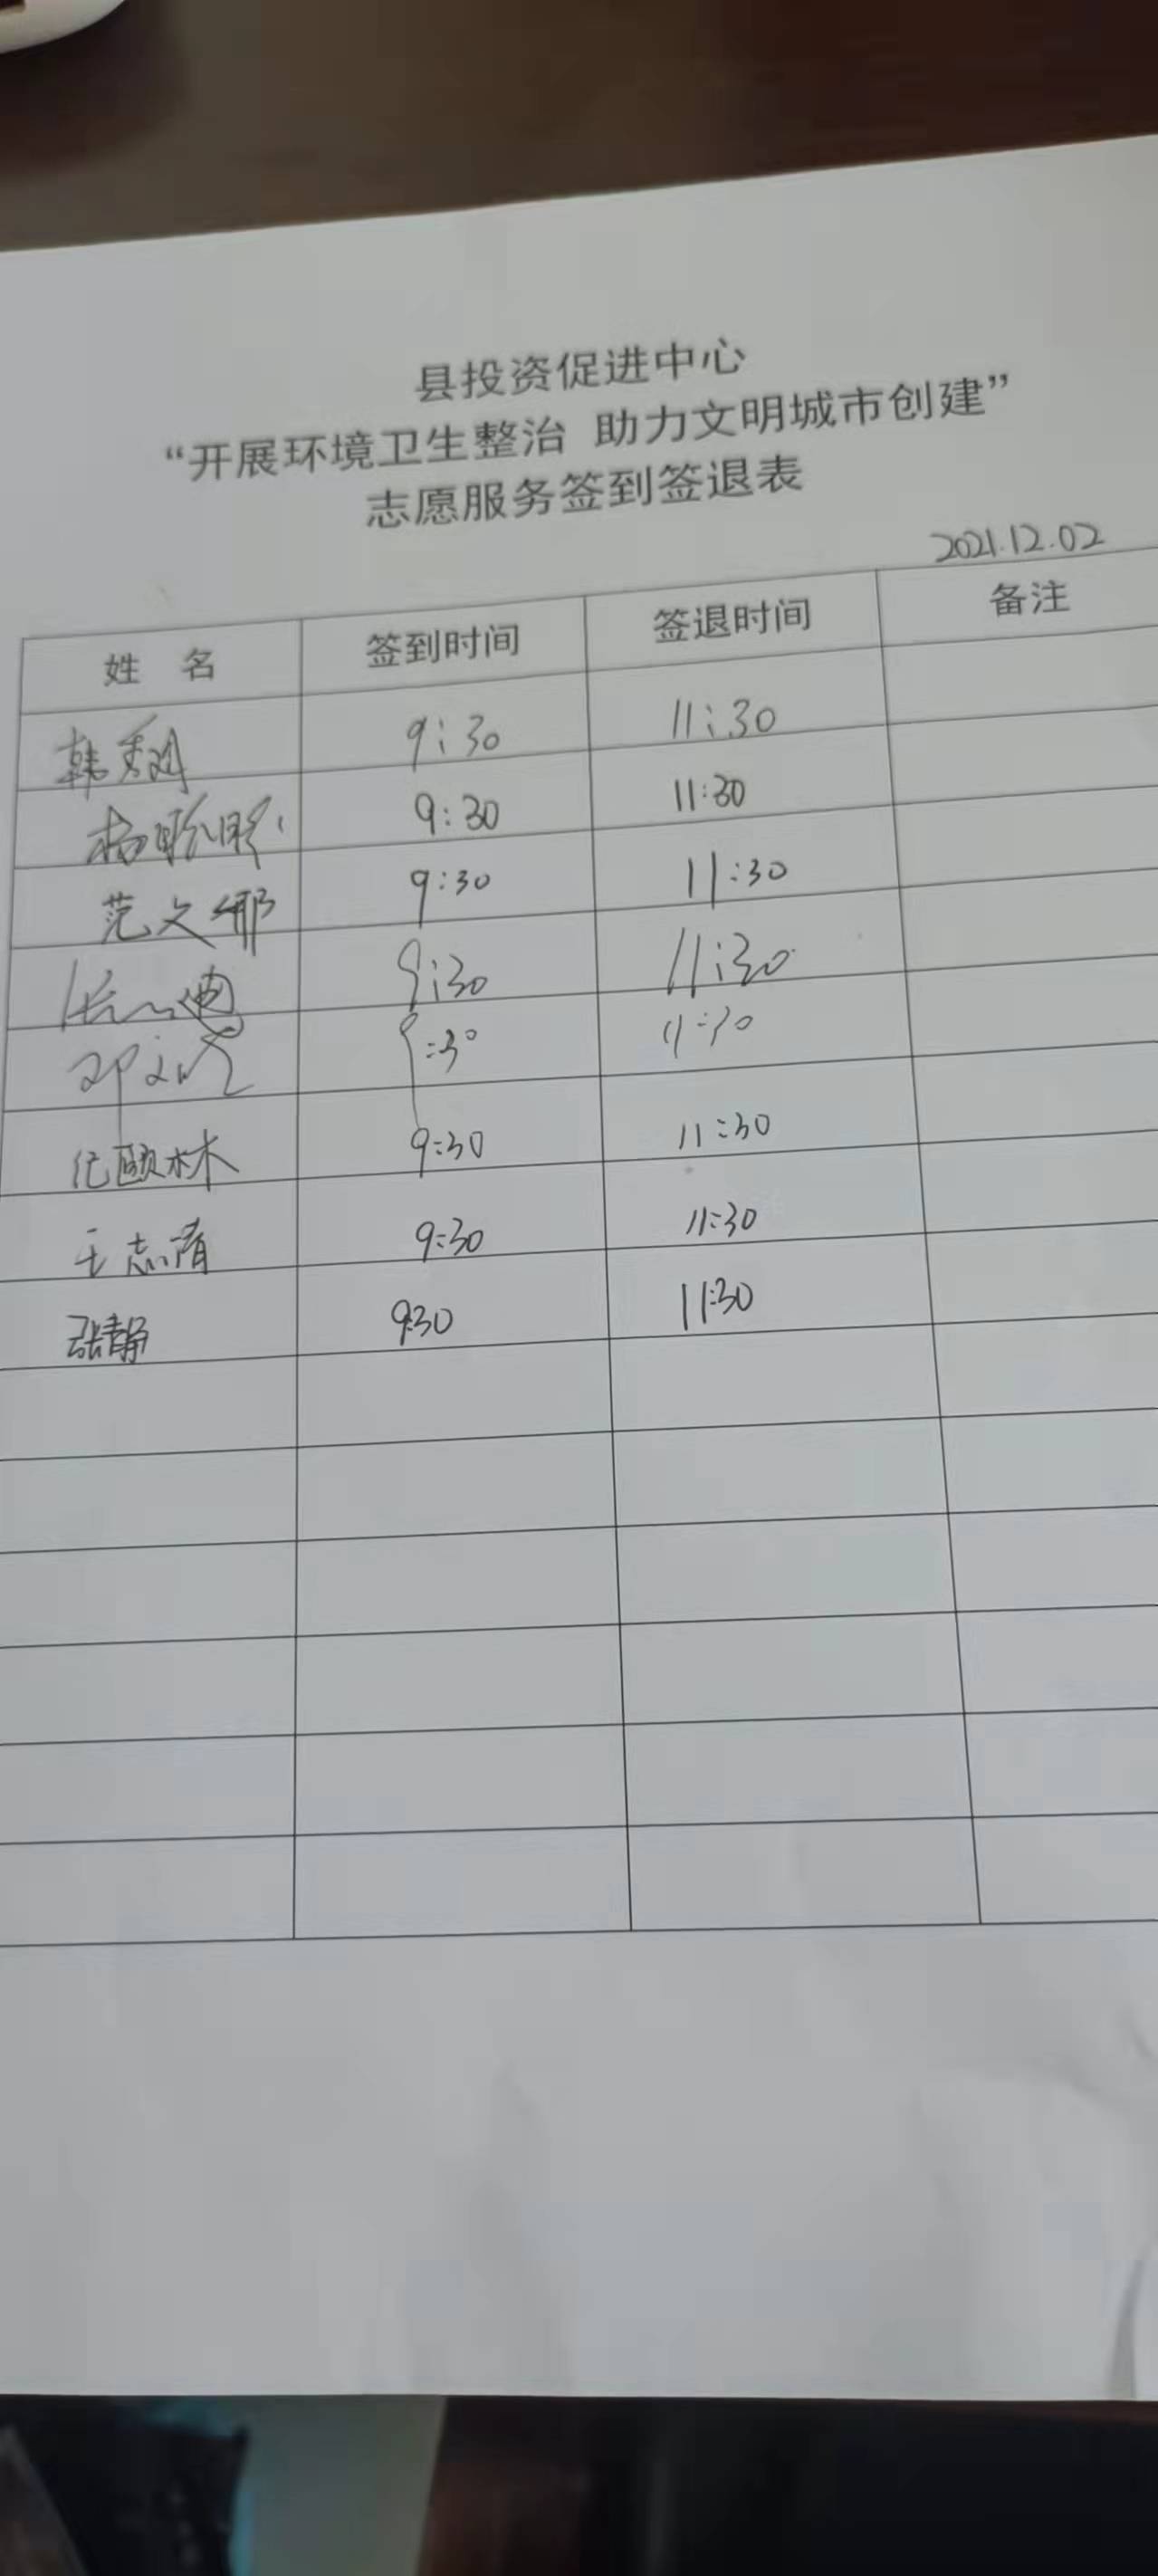 县投资促进中心
“开展环境卫生整治 助力文明城市创建”
志愿服务签到签退表
2021.12.02
姓 名 签到时间 签退时间 备注
9:30 11:30
9:30 11:30
范文娜 9:30 11:30
9:30 11:30
9:30 11:30
9:30 11:30
9:30 11:30
张静 9:30 11:30